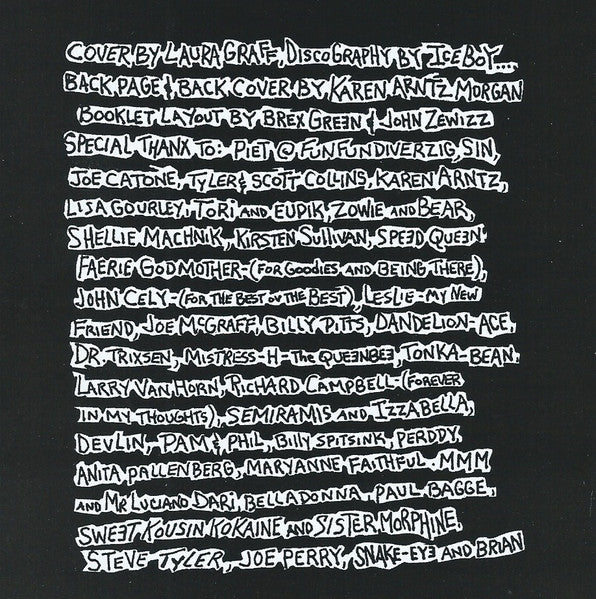 COVER BY LAURA GRAFF, DISCOGRAPHY BY ICEBOY...
BACK PAGE & BACK COVER BY KAREN ARNTZ MORGAN
BOOKLET LAYOUT BY BREX GREEN & JOHN ZEWIZZ
SPECIAL THANX TO: PIET @ FUNFUNDIVERZIG, SIN,
JOE CATONE, TYLER & SCOTT COLLINS, KAREN ARNTZ,
LISA GOURLEY, TORI AND EUPIK, ZOWIE AND BEAR,
SHELLIE MACHNIK,, KIRSTEN SULLIVAN, SPEED QUEEN.
FAERIE GODMOTHER-(FOR GOODIES AND BEING THERE),
JOHN CELY-(FOR THE BEST OV THE BEST), LESLIE-MY NEW
FRIEND, JOE MCGRAFF, BILLY PITTS, DANDELION-ACE,
DR. TRIXSEN, MISTRESS-H-THE QUEENBEE, TONKA-BEAN.
LARRY VAN HORN, RICHARD CAMPBELL-(FOREVER
IN MY THOUGHTS), SEMIRAMIS AND IZZABELLA,
DEVLIN, PAM & PHIL, BILLY SPITSINK, PERDDY,
ANITA PALLENBERG, MARYANNE FAITHFUL. MMM
AND MR LUCIANO DARI, BELLADONNA, PAUL BAGGE,
SWEET KOUSIN KOKAINE AND SISTER MORPHINE,
STEVE TYLER,, JOE PERRY, SNAKE-EYE AND BRIAN